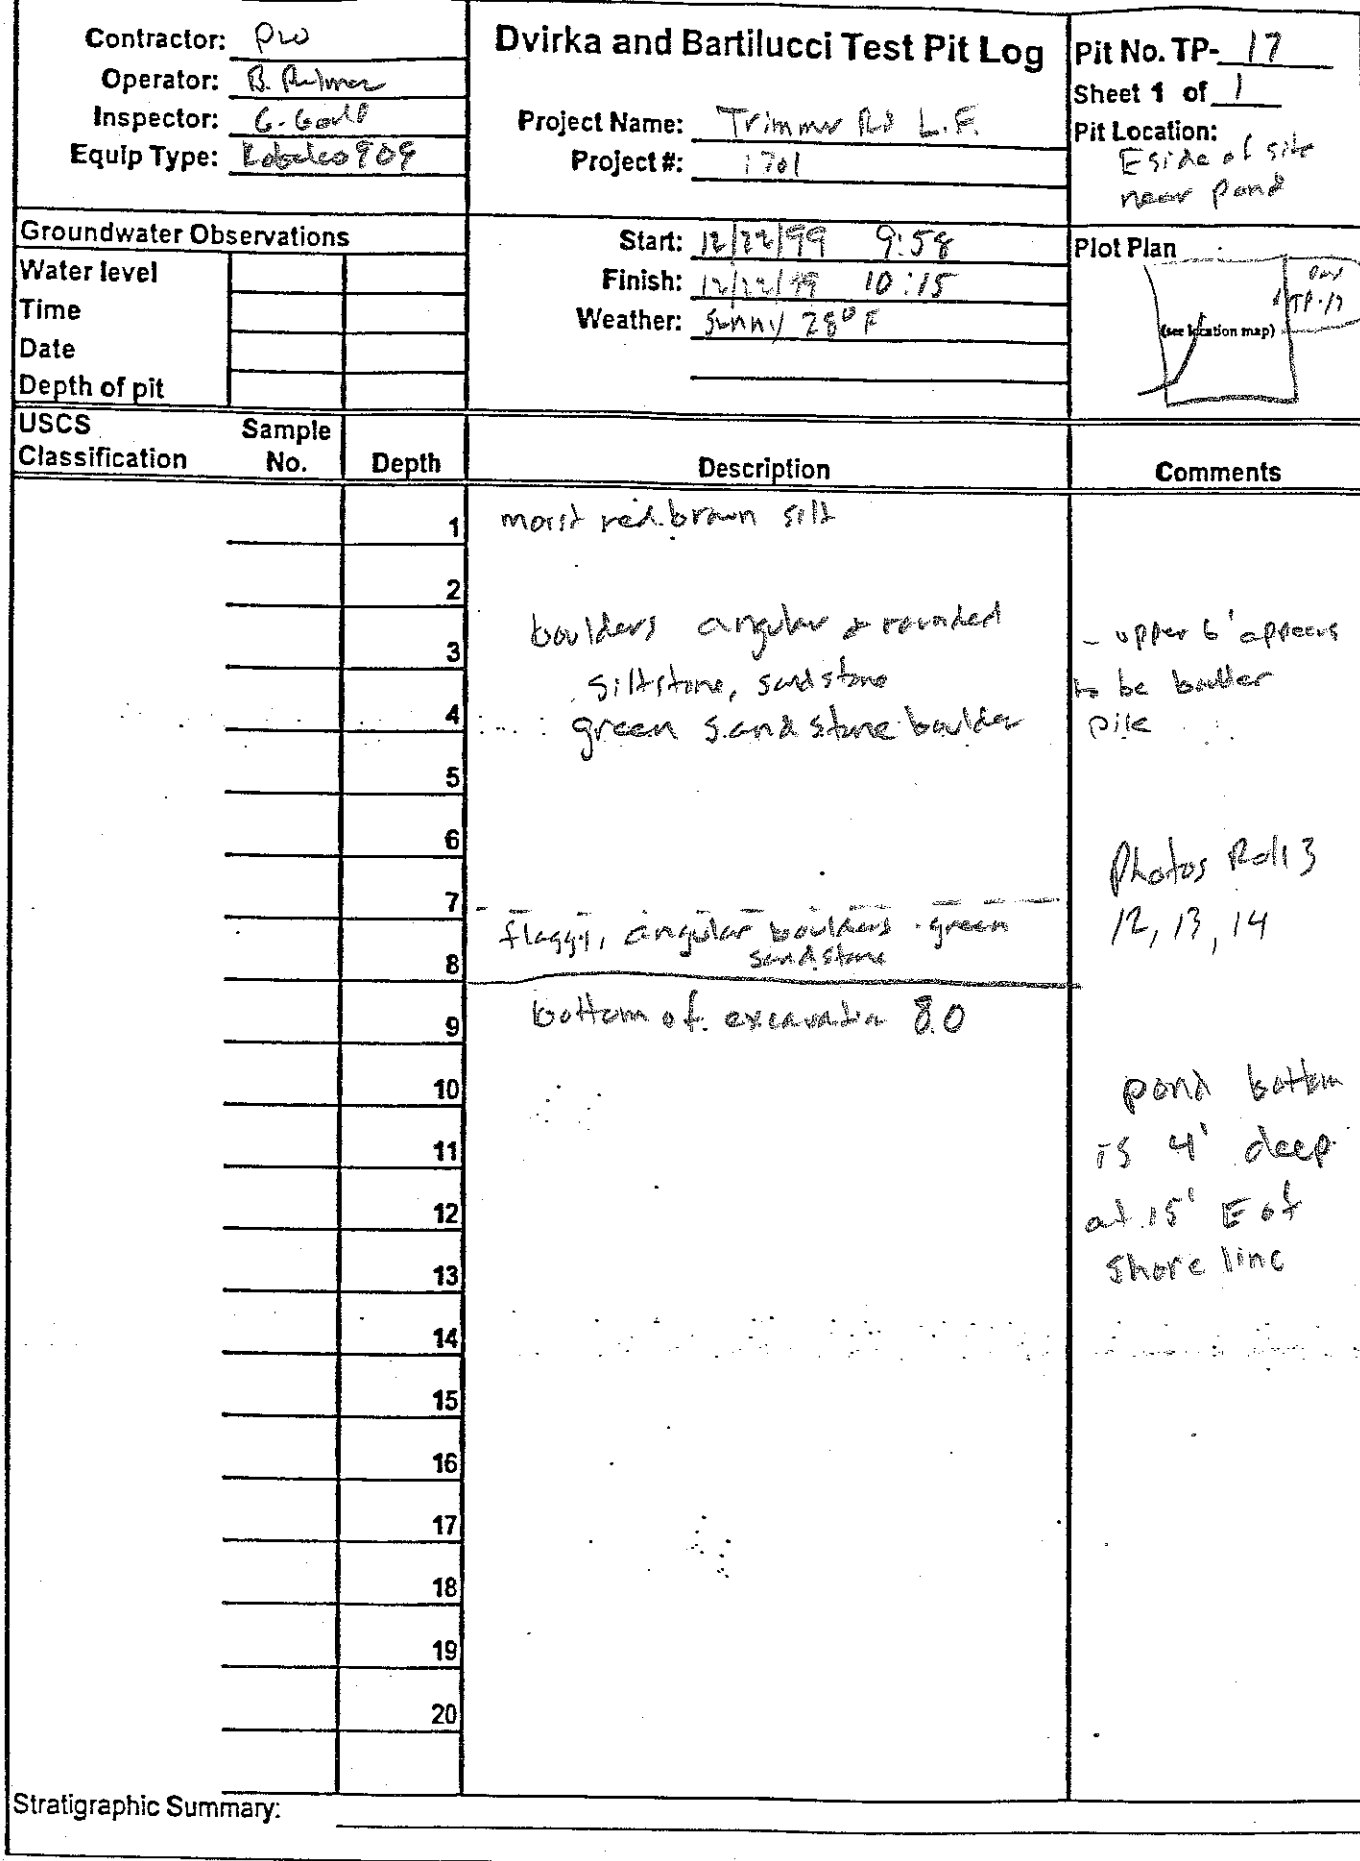 Contractor: PW
Operator: B. Palmer
Inspector: G. Gould
Equip Type: 909
Dvirka and Bartilucci Test Pit Log
Project Name: Trimmer Rd L.F.
Project #: 1701
Pit No. TP- 17
Sheet 1 of 1
Pit Location:
E side of site
near pond
Groundwater Observations
Water level
Time
Date
Depth of pit
Start: 12/22/99 9:58
Finish: 12/22/99 10:15
Weather: Sunny 28° F
Plot Plan
TP-17
(see location map)
USCS
Classification
Sample
No.
Depth
Description
Comments
1 moist red.brown silt
2
boulders angular & rounded
3
siltstone, sandstone
4 green sandstone boulder
- upper 6' appears
to be boulder
pile
5
6
Photos Roll 3
12, 13, 14
7
flaggy, angular boulders - green
sandstone
8
9 bottom of excavation 8.0
10
pond bottom
11 is 4' deep
12 at 15' E of
shore line
13
14
15
16
17
18
19
20
Stratigraphic Summary: